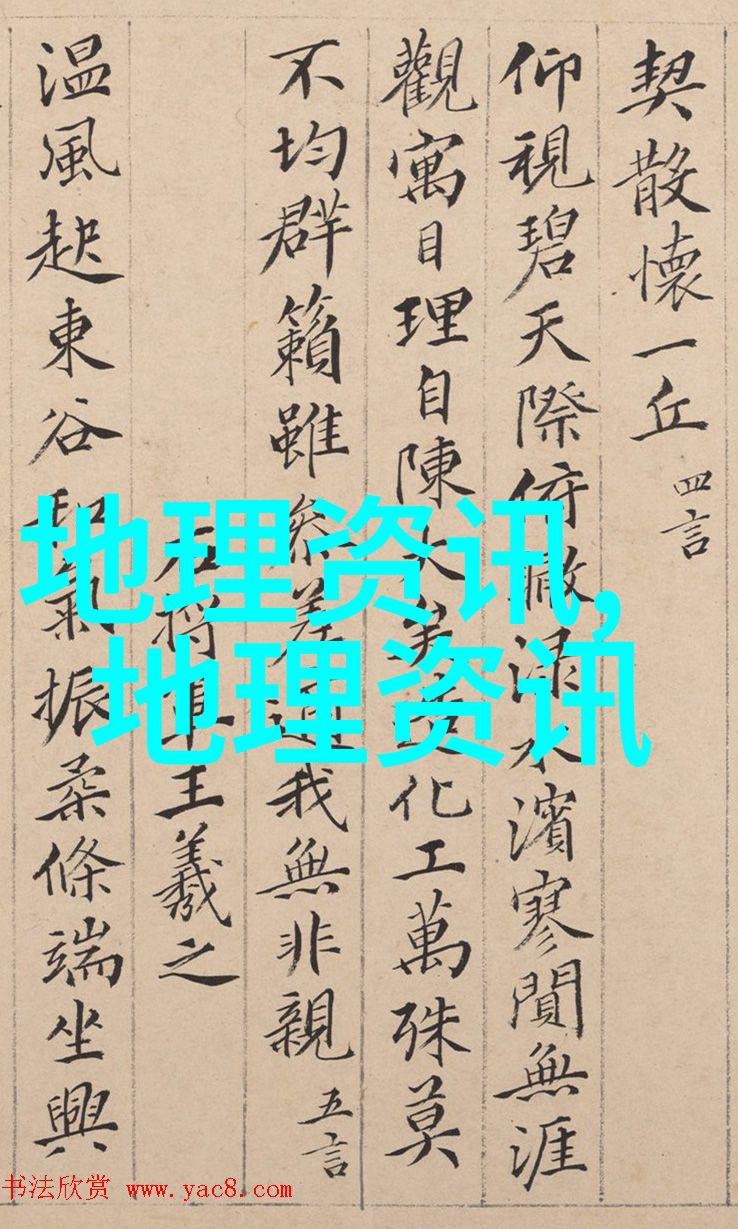 契散懷一丘 四言
仰視碧天際俯瞰渌水濱寥閴無涯
觀寓目理自陳大矣造化工萬殊莫
不均群籟雖參差適我無非親 五言
右將軍王羲之
温風起東谷和氣振柔條端坐興
地理资讯,
地理资讯
书法欣赏 www.yac8.com